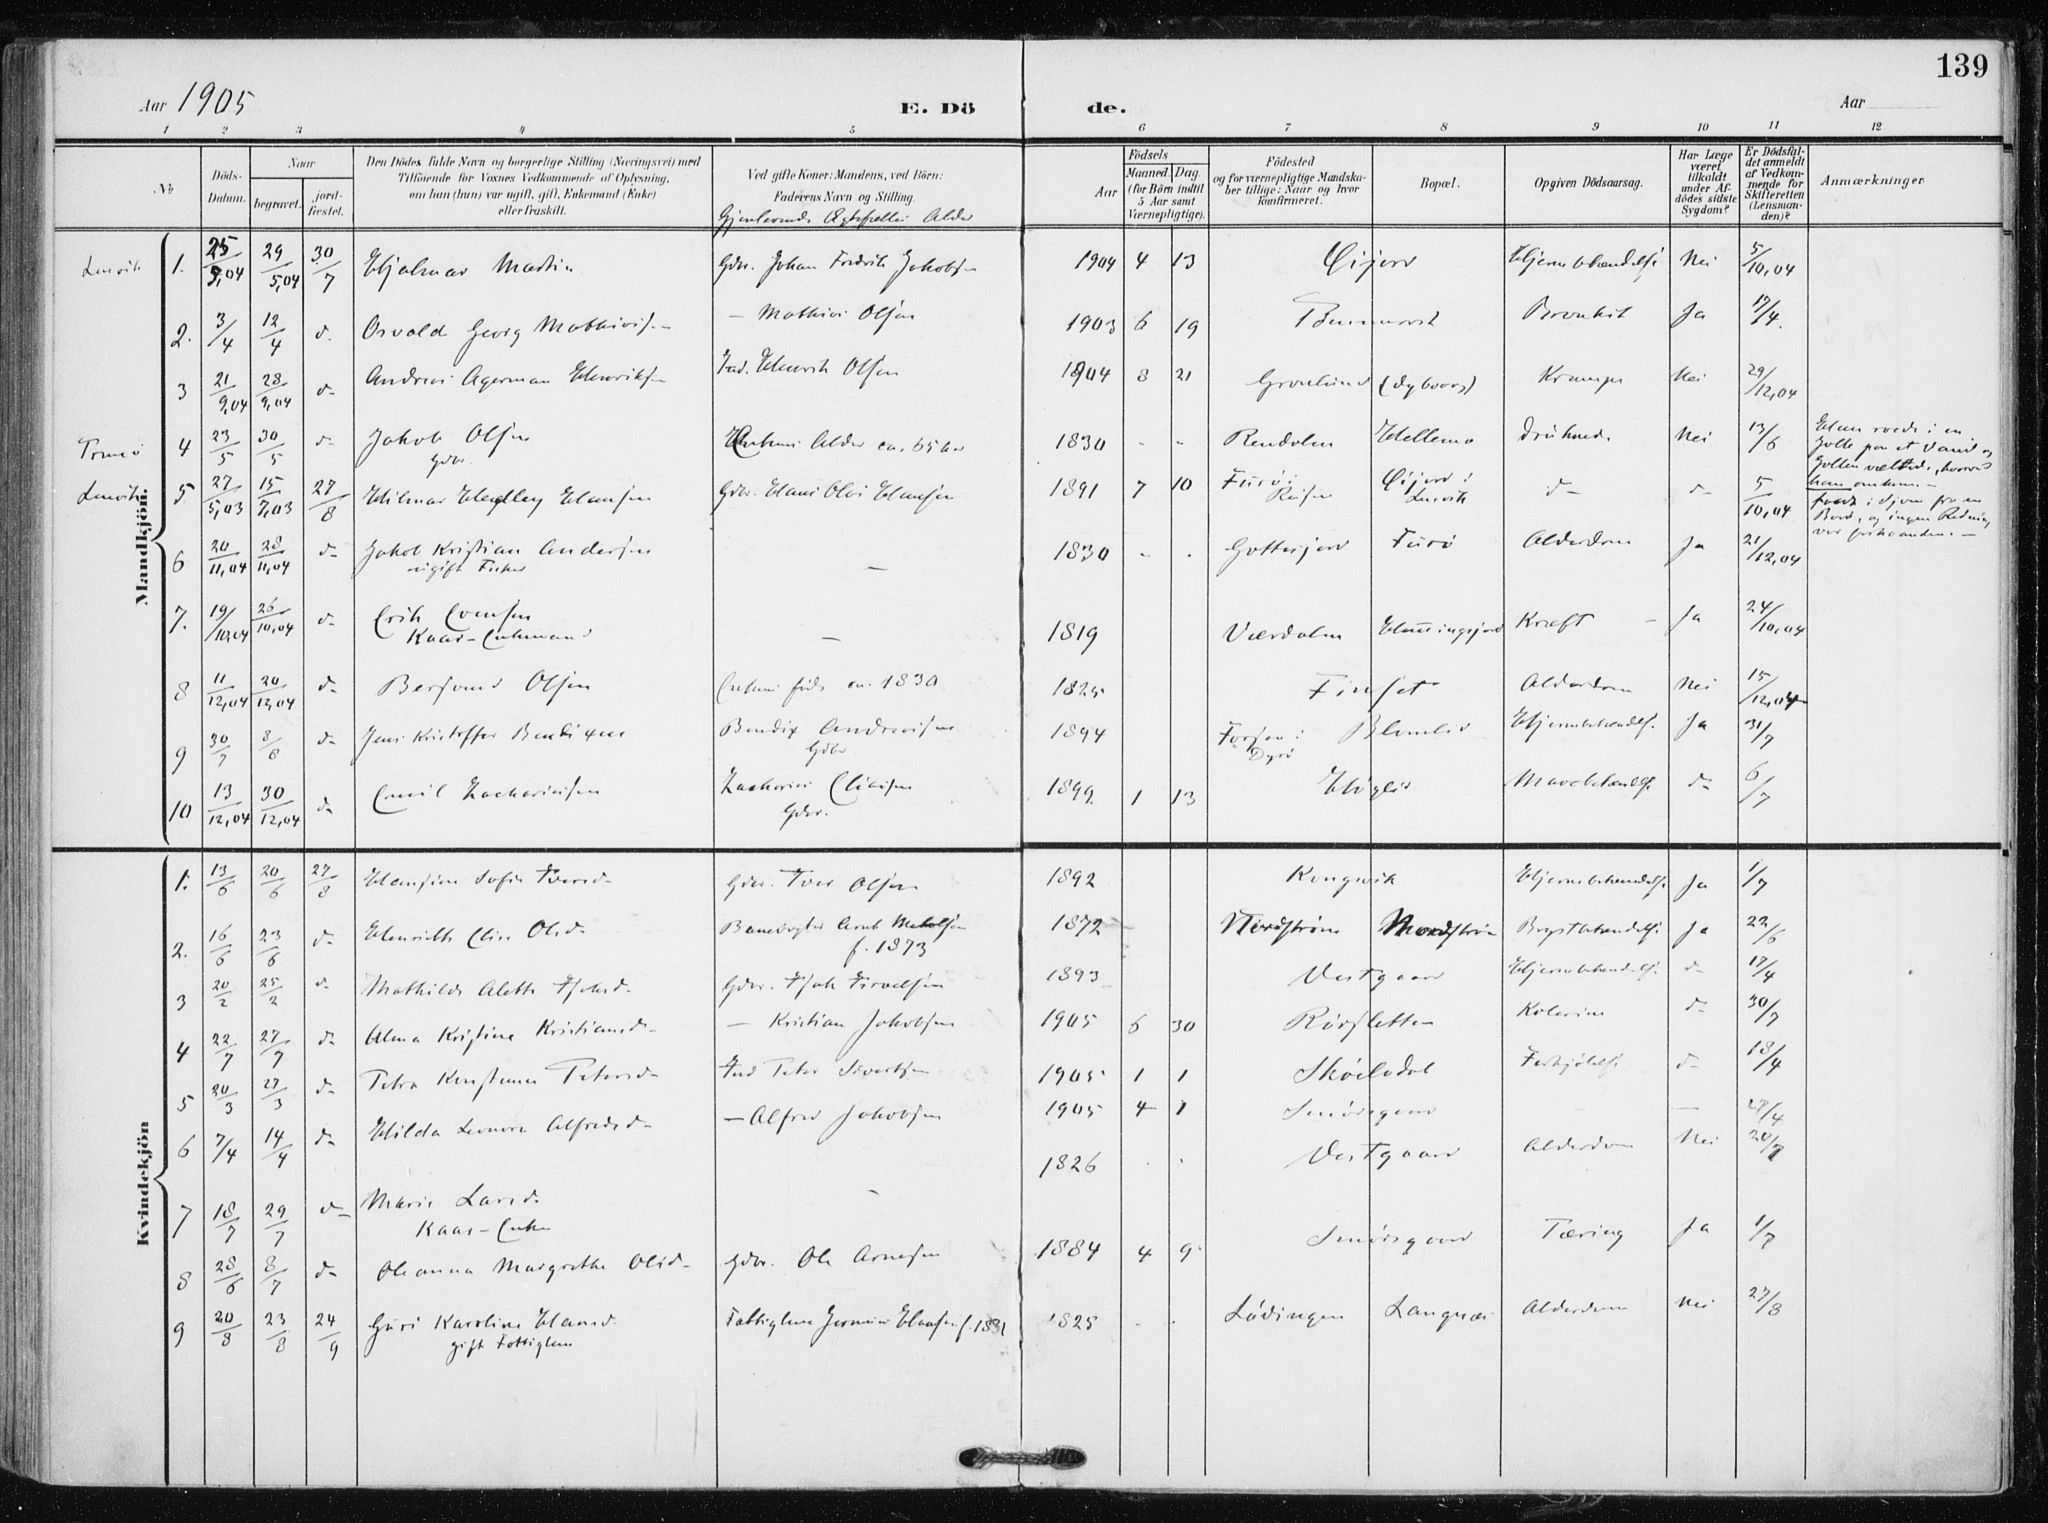 139
Aar 1905
E. Dö de.
Aar
1 2 3 4 5 6 7 8 9 10 11 12
№
Döds-Datum.
Naar
begravet.
jord-fæstet.
Den Dödes fulde Navn og borgerlige Stilling (Næringsvei) med
Tilföiende for Voxnes Vedkommende af Oplysning,
om han (hun) var ugift, gift, Enkemand (Enke)
eller fraskilt.
Ved gifte Koner: Mandens, ved Börn:
Faderens Navn og Stilling.
Gjenlevende Ægtefælles Alder
Födsels
Aar
Maaned. Dag.
(for Börn indtil
5 Aar samt
Værnepligtige).
Födested
og for værnepligtige Mandska-
ber tillige: Naar og hvor
konfirmeret.
Bopæl.
Opgiven Dödsaarsag.
Har Læge
været
tilkaldt
under Af-
dödes sidste
Sygdom?
Er Dödsfal-
det anmeldt
af Vedkom-
mende for
Skifteretten
(Lensman-
den)?
Anmærkninger
Mandkjön.
Lenvik 1. 25/5,04 29/5,04 30/7 Hjalmar Martin Gdbr. Johan Fredrik Jakobsen 1904 4 13 Øijord Hjernebetændelse Nei 5/10,04
2. 3/4 12/4 d. Osvald Georg Mathisen — Mathias Olsen 1903 6 19 Bronkit Ja 17/4.
3 21/9,04 28/9,04 d- Andreas Agerman Henriksen Ind. Henrik Olsen 1904 8 21 Grønlund Krampe Nei 29/12,04
Tromsø 4 23/5 30/5 d- Jakob Olsen Enkens Alder ca. 65 Aar 1830 - - Rendalen Hellemo druknede Nei 13/6
Gdbr.
Han roede i en
Jolle paa et Vand og
Jollen væltede, hvorved
han omkom. —
Lenvik 5 27/5,03 15/7,03 27/8 Hilmar Hansen Gdbr. Hans Olai Hansen 1891 7 10 Furø i Reisen Øijord i Lenvik d- d- 5/10,04
faldt i Sjøen fra en
Baad, og ingen Redning
var forhaanden. —
6 20/11,04 28/11,04 d- Jakob Kristian Andersen — 1830 - - Gottesjord Furø Alderdom Ja 21/12,04
ugift Fisker
7. 19/10,04 26/10,04 d- Erik Evensen — 1819 Værdalen Kræft — Ja 24/10,04
Kaar-Enkemand
8 11/12,04 20/12,04 d- Bersvend Olsen Enkens føds. ca. 1830 1825 Finset Alderdom Nei 15/12,04
9 30/7 8/8 d- Jens Kristoffer Bendixen Bendix Andreasen 1894 Forsøen i Dyrø Blomlid Hjernebetændelse. Ja 31/7
Gdbr
10 13/12,04 30/12,04 d- Emil Zachariassen Zacharias Eliasen 1899 1 13 Høglid Mavebetændelse d- 6/7
Gdbr.
Kvindekjön
1. 13/6 20/6 27/8 Hansine Sofie Iversd. Gdbr. Iver Olsen 1892 Kongsvik Hjernebetændelse Ja 1/7
2. 16/6 23/6 d- Henriette Elise Olsd. 1872 Nordstrøm Nordstrøm Brystbetændelse Ja 22/6
f. 1873
3 20/2 25/2 d- Mathilde Alette 1893 Vestgaard Hjernebetændelse. d- 17/4
4 22/7 27/7 d- Alma Kristine Kristiansd. — Kristian Jakobsen 1905 6 30 Rørsletten Kolerine d- 30/7
5 20/3 27/3 d- Petra Konstanse Petersd- Ind Peter Sivertsen 1905 1 1 Skøelvdal Forkjølelse d- 18/4
6 7/4 14/4 d- Hilda Leonora Alfredsd- — Alfred Jakobsen 1905 4 1 Smørsgaard — 27/4
7 18/7 29/7 d- Marie Larsd. — 1826 - - Vestgaard Alderdom Nei 20/7
Kaar-Enke
8 28/6 8/7 d- Oleanna Margrethe Olsd- Gdbr. Ole Arnesen 1884 4 9 Smørsgaard Tæring Ja 1/7
9 20/8 23/8 24/9 Guri Karoline Hansd. Fattiglem Hansen f. 1831 1825 - - Lødingen Langnes Alderdom Nei 27/8
gift Fattiglem